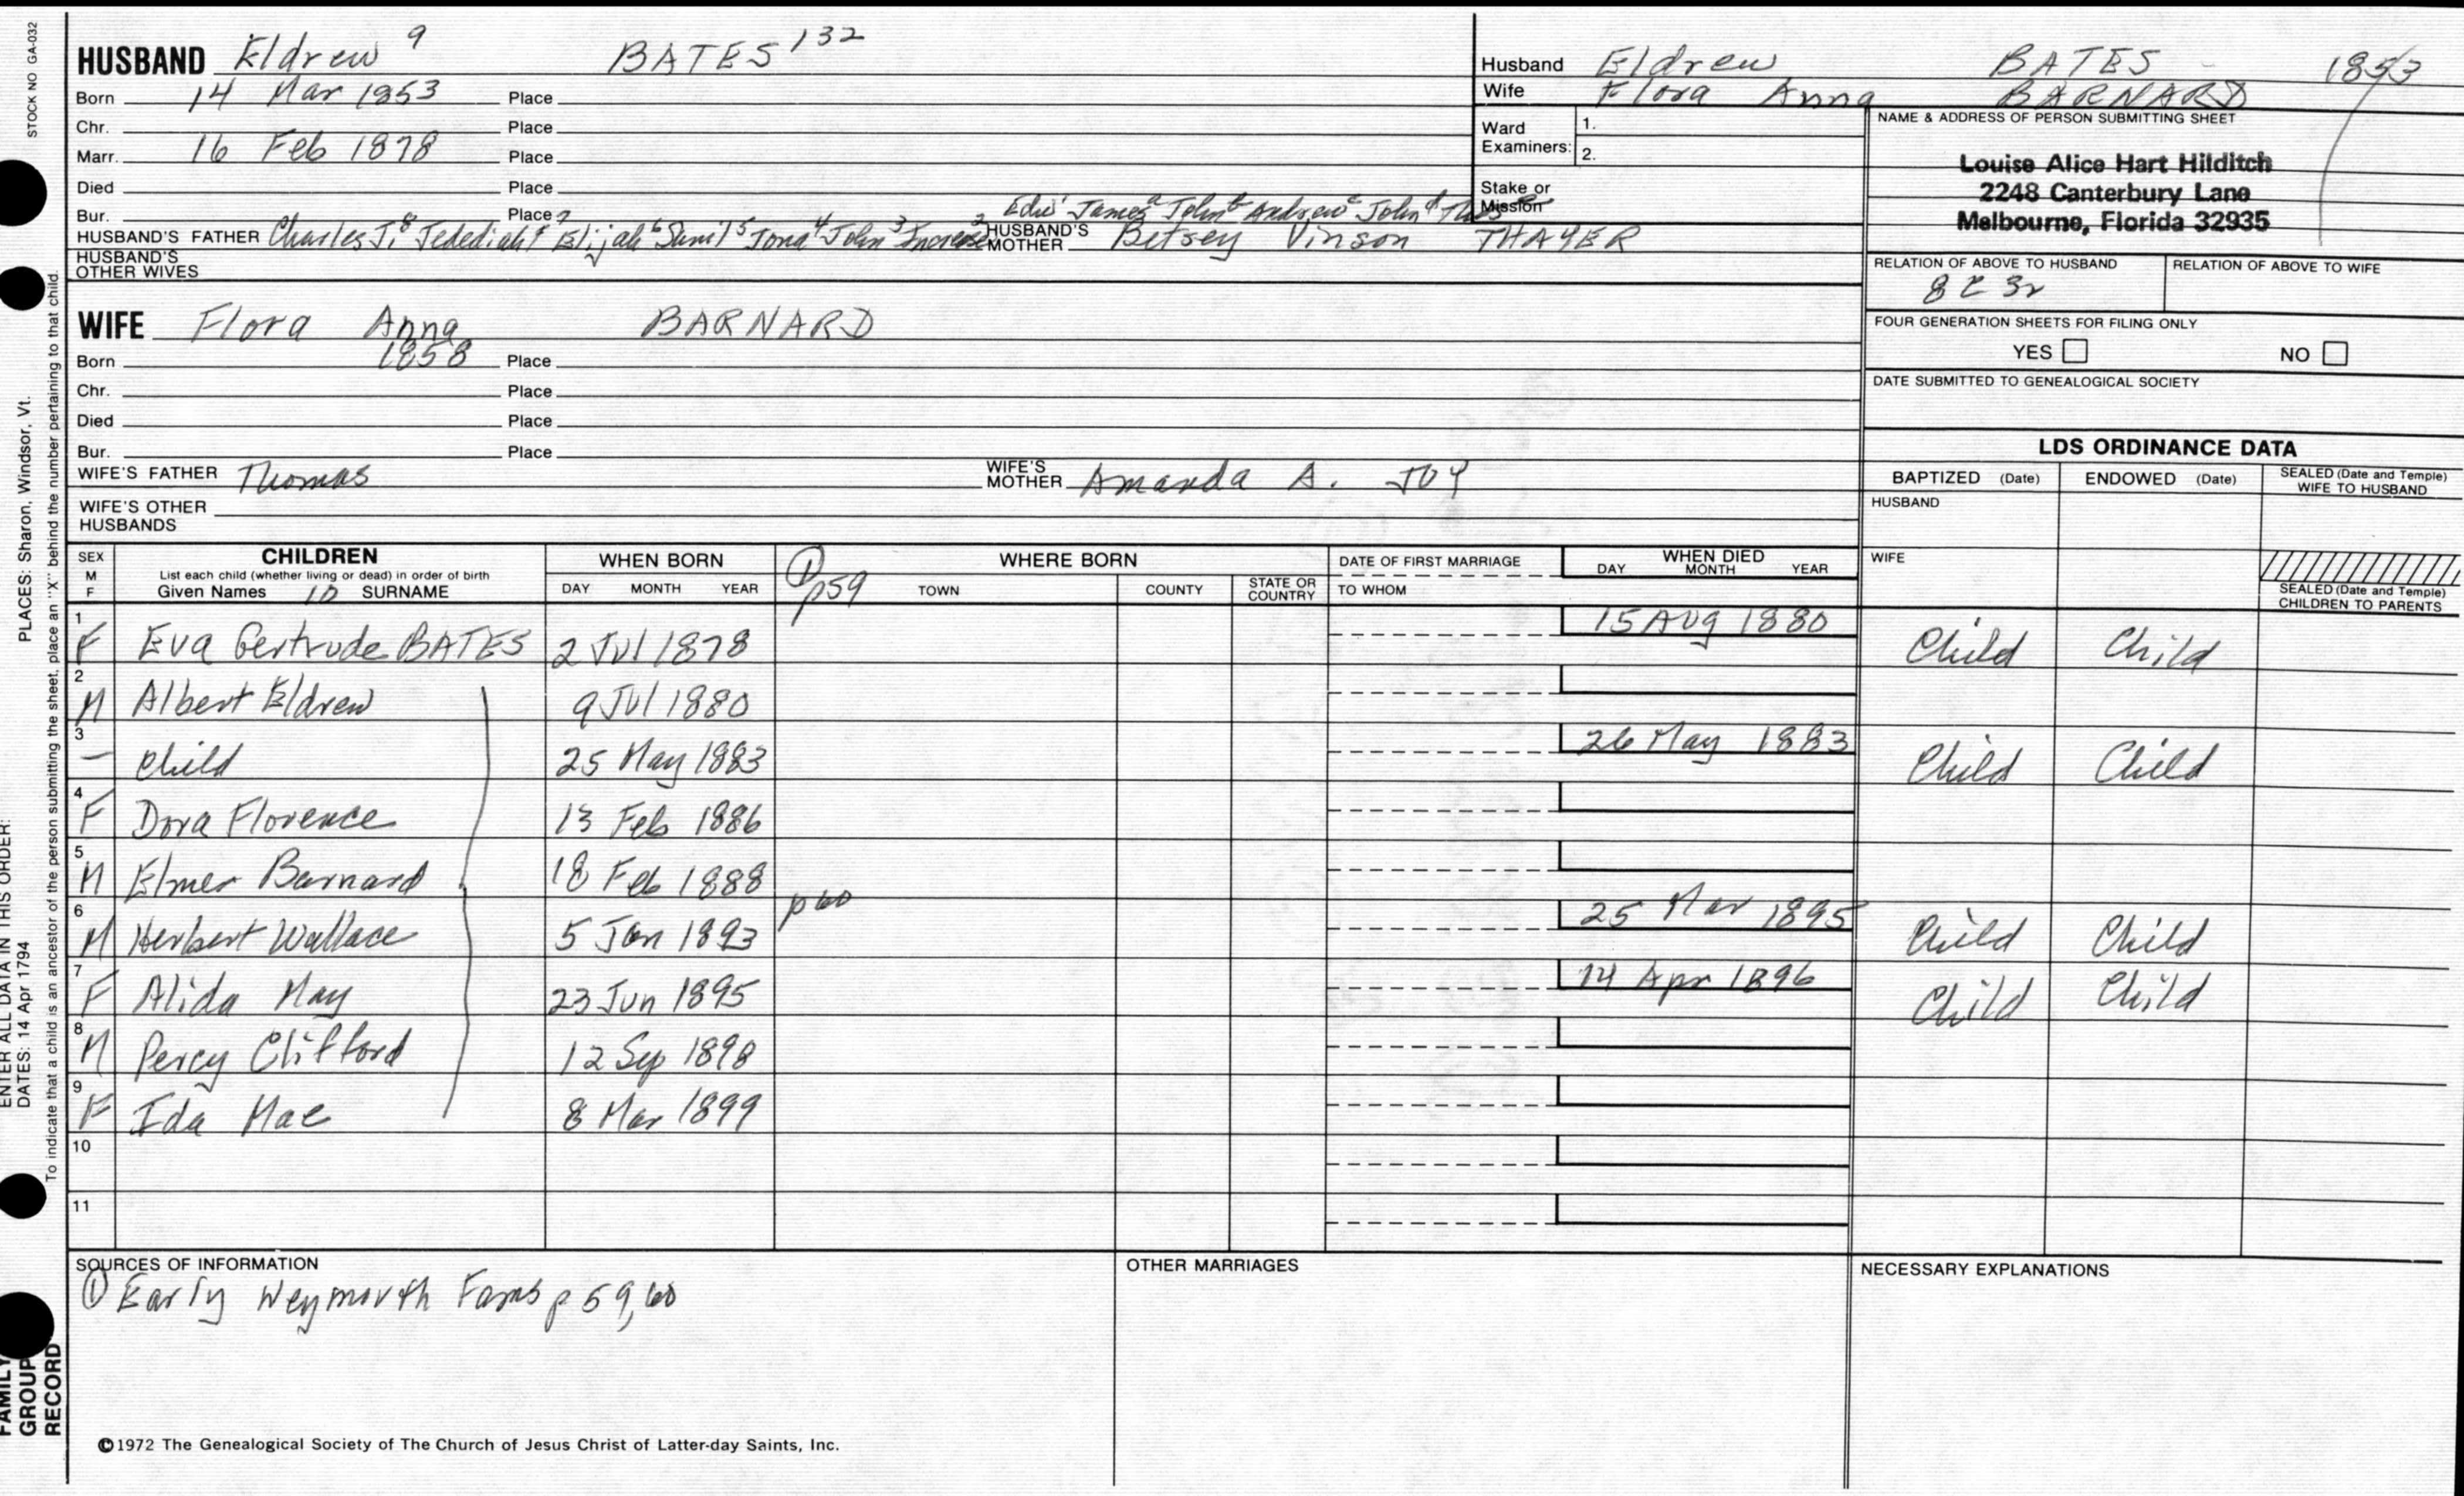 STOCK NO GA-032
HUSBAND Eldrew 9 BATES 132
Born 14 Mar 1853 Place
Chr. Place
Marr. 16 Feb 1878 Place
Died Place
Bur. Place
HUSBAND'S FATHER Charles J.8 Jedediah7 Elijah6 Saml5 Jona4 John3 Increase2
Edw James John Andrew John
HUSBAND'S MOTHER Betsey Vinson THAYER
HUSBAND'S OTHER WIVES
WIFE Flora Anna BARNARD
Born 1858 Place
Chr. Place
Died Place
Bur. Place
WIFE'S FATHER Thomas WIFE'S MOTHER Amanda A. JOY
WIFE'S OTHER HUSBANDS
Husband Eldrew BATES 1853
Wife Flora Anna BARNARD
Ward Examiners: 1.
2.
Stake or Mission
NAME & ADDRESS OF PERSON SUBMITTING SHEET
Louise Alice Hart Hilditch
2248 Canterbury Lane
Melbourne, Florida 32935
RELATION OF ABOVE TO HUSBAND RELATION OF ABOVE TO WIFE
8 C 3r
FOUR GENERATION SHEETS FOR FILING ONLY
YES NO
DATE SUBMITTED TO GENEALOGICAL SOCIETY
LDS ORDINANCE DATA
BAPTIZED (Date) ENDOWED (Date) SEALED (Date and Temple) WIFE TO HUSBAND
HUSBAND
WIFE
SEALED (Date and Temple) CHILDREN TO PARENTS
SEX M F
CHILDREN
List each child (whether living or dead) in order of birth
Given Names 10 SURNAME
WHEN BORN
DAY MONTH YEAR
① p59
WHERE BORN
TOWN COUNTY STATE OR COUNTRY
DATE OF FIRST MARRIAGE
TO WHOM
WHEN DIED
DAY MONTH YEAR
1 F Eva Gertrude BATES 2 Jul 1878 15 Aug 1880 Child Child
2 M Albert Eldrew 9 Jul 1880
3 — Child 25 May 1883 26 May 1883 Child Child
4 F Dora Florence 13 Feb 1886
5 M Elmer Barnard 18 Feb 1888
6 M Herbert Wallace 5 Jan 1893 p 60 25 Mar 1895 Child Child
7 F Alida May 23 Jun 1895 14 Apr 1896 Child Child
8 M Percy Clifford 12 Sep 1898
9 F Ida Mae 8 Mar 1899
10
11
SOURCES OF INFORMATION
① Early Weymouth Fams p 59, 60
OTHER MARRIAGES
NECESSARY EXPLANATIONS
©1972 The Genealogical Society of The Church of Jesus Christ of Latter-day Saints, Inc.
ENTER ALL DATA IN THIS ORDER:
PLACES: Sharon, Windsor, Vt.
DATES: 14 Apr 1794
To indicate that a child is an ancestor of the person submitting the sheet, place an "X" behind the number pertaining to that child.
FAMILY GROUP RECORD